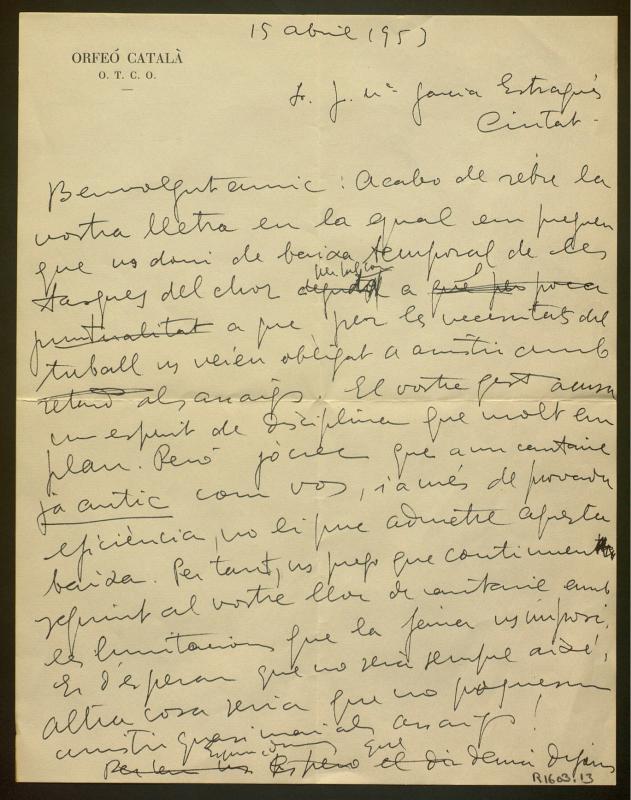 15 abril 1953
ORFEÓ CATALÀ
O. T. C. O.
Sr. J. Mª Garcia Estragués
Ciutat -
Benvolgut amic: Acabo de rebre la
vostra lletra en la qual em pregueu
que us doni de baixa temporal de les
tasques del chor a que per poca
puntualitat a que per les necessitats del
treball us veieu obligat a assistir amb
retard als assaigs. El vostre gest acusa
un esperit de disciplina que molt em
plau. Però jo crec que a un cantaire
ja antic com vos, i a més de provada
eficiència, no li puc admetre aquesta
baixa. Per tant, us prego que continueu
seguint al vostre lloc de cantaire amb
les limitacions que la feina us imposi.
Es d'esperar que no serà sempre així;
altra cosa seria que no poguessiu
assistir quasi mai als assaigs!
Espero que el dia demà dijous
R1603.13